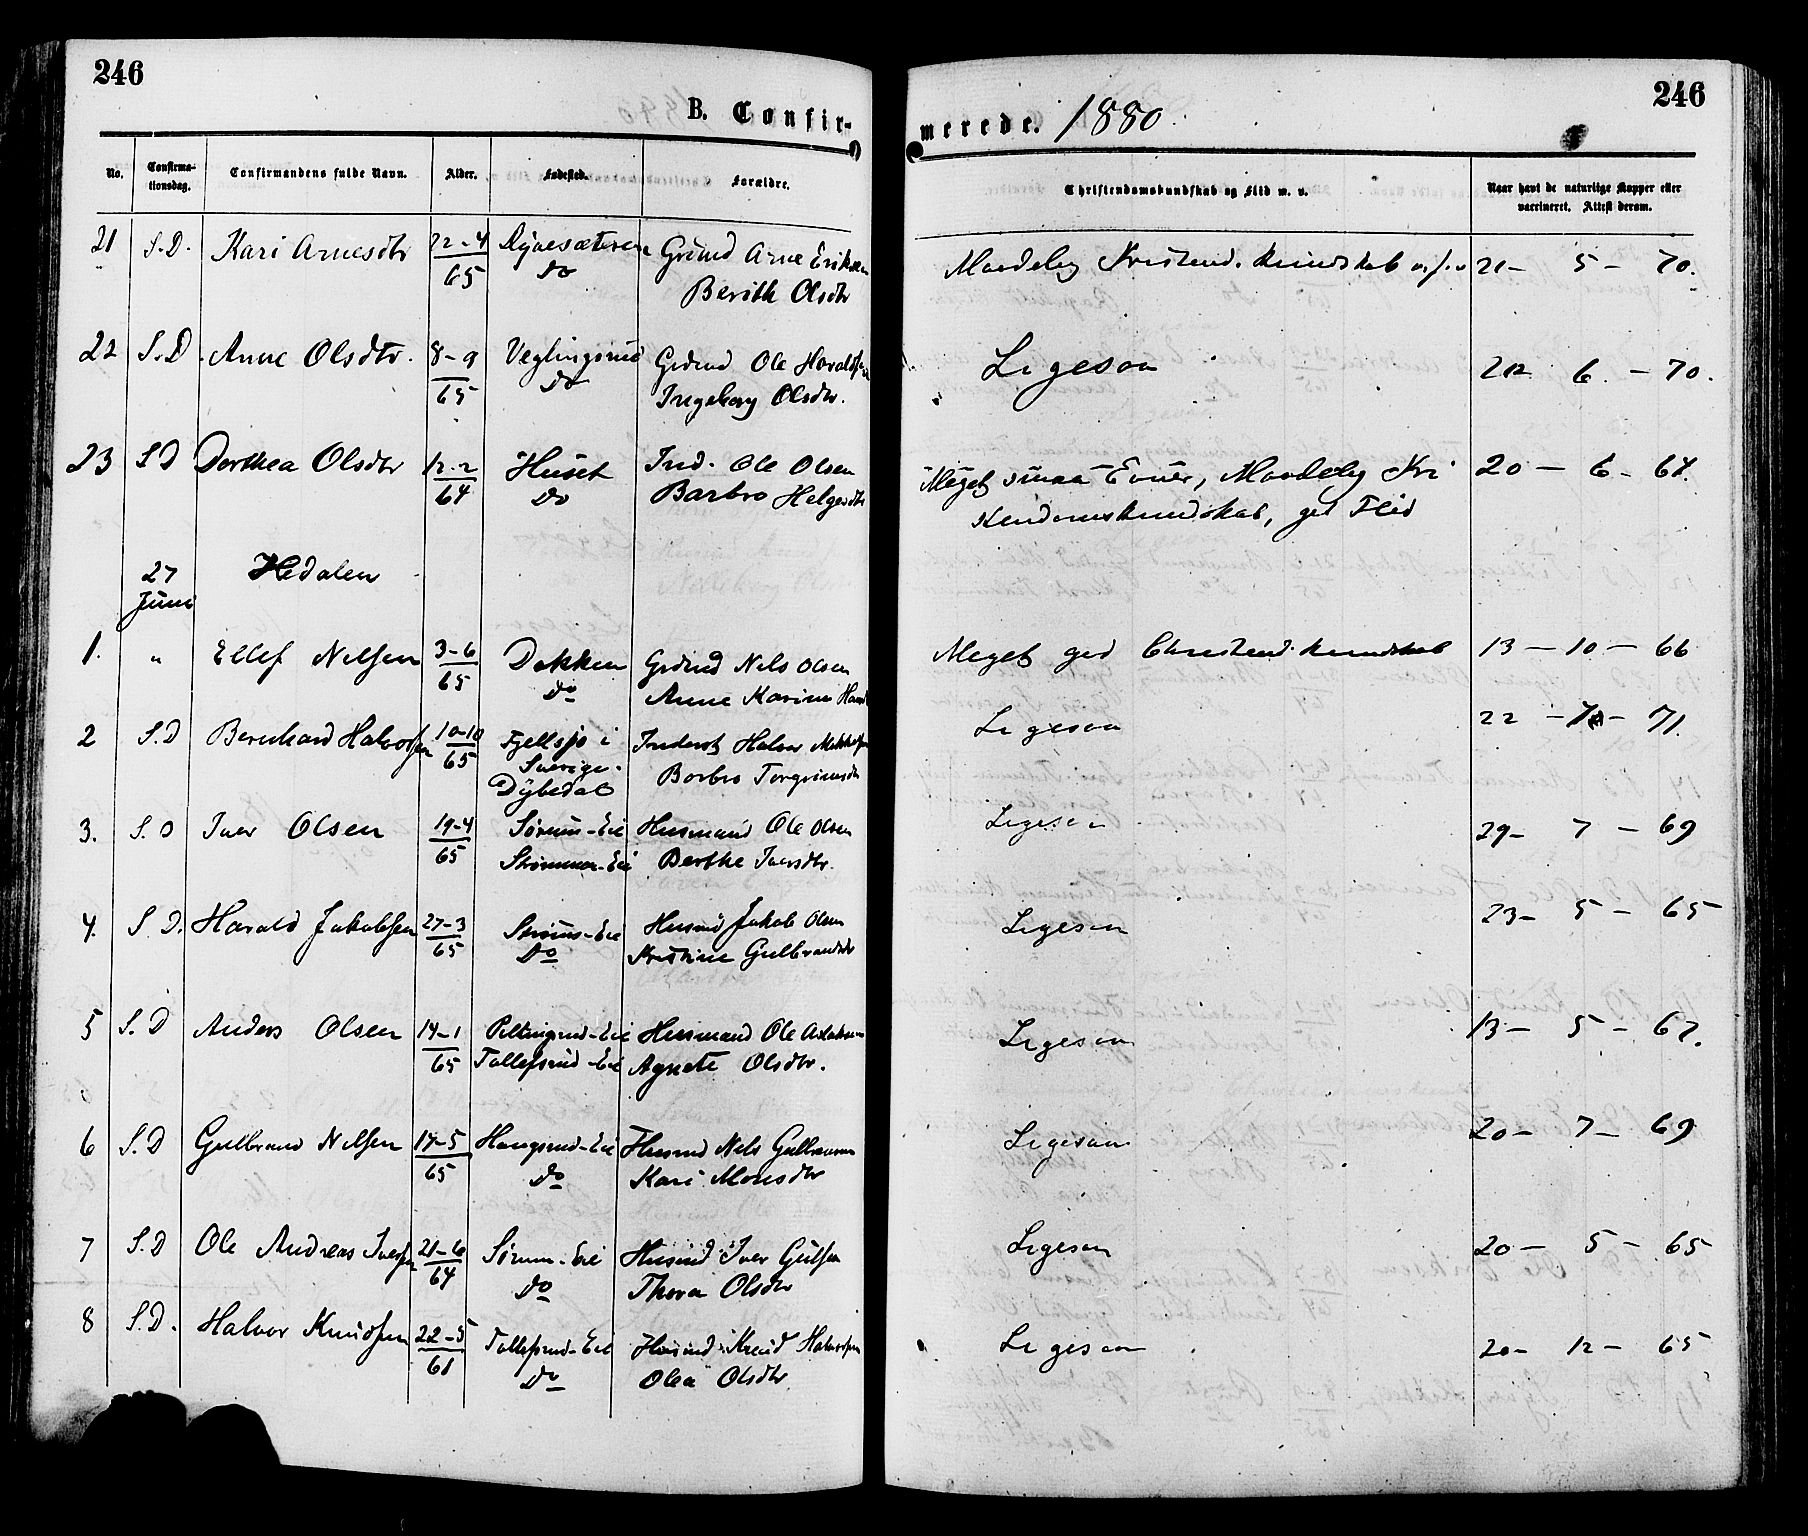 246
246
B. Confirmerede. 1880.
No. Confirmationsdag. Confirmandens fulde Navn. Alder. Fødested. Forældre. Christendomskundskab og Flid m. v. Naar havt de naturlige Kopper eller vaccineret. Attest derom.
21 S.D. Kari Arnesdtr 22-4 65 Grdmd Arne Eriksen 21- 5- 70.
Do Berith Olsdtr
22 S.D. Anne Olsdtr. 8-9 65 Veglingsrud Grdmd Ole Haraldsen Ligesaa 6.-70.
Do Ingeborg Olsdtr.
23 S D Dorthea Olsdtr 12-2 64 Huset Ind. Ole Olsen Meget smaa Evner, Maadelig Kri 20-6-67.
Do Barbro Helgesdtr stendomskundskab, god Flid
27 Juni Hedalen
1. " Ellef Nilsen 3-6 65 Dokken Grdmd Nels Olsen Meget god Christend. kundskab 13-10-66
Do Anne Karine
2 S.D Bernhard Halvorsen 10-10 65 Fjellsjø i Inderst Halvor Ligesaa 22 - 71.
Sverige. Barbro Torgrimsdtr
Dybedal
3. S.D Iver Olsen 19-4 65 Sørum-Eie Husmand Ole Olsen Ligesaa 29-7-69
Strømmen-Eie Berthe Iversdtr.
4. S.D. Harald Jakobsen 27-3 65 Husmd Jakob Olsen Ligesaa 23-5-65
Do Kristine Gulbrandsdtr
5 S.D Anders Olsen 14-1 65 Husmand Ole Ligesaa 13-5-67.
Tollefsrud-Eie Agnete Olsdtr.
6 S.D Gulbrand Nilsen 17-5 65 Haugsrud-Eie Husmd Nels Gulbransen Ligesaa 20-7-69
Do Kari Monsdtr
7 S.D Ole Andreas Iversen 21-6 64 Sørum-Eie Husmd Iver Ligesaa 20-5-65
Do Thora Olsdtr
8 S.D. Halvor Knudsen 22-5 61 Tollefsrud-Eie Husmd Knud Halvorsen Ligesaa 20-12-65
Do Olea Olsdtr